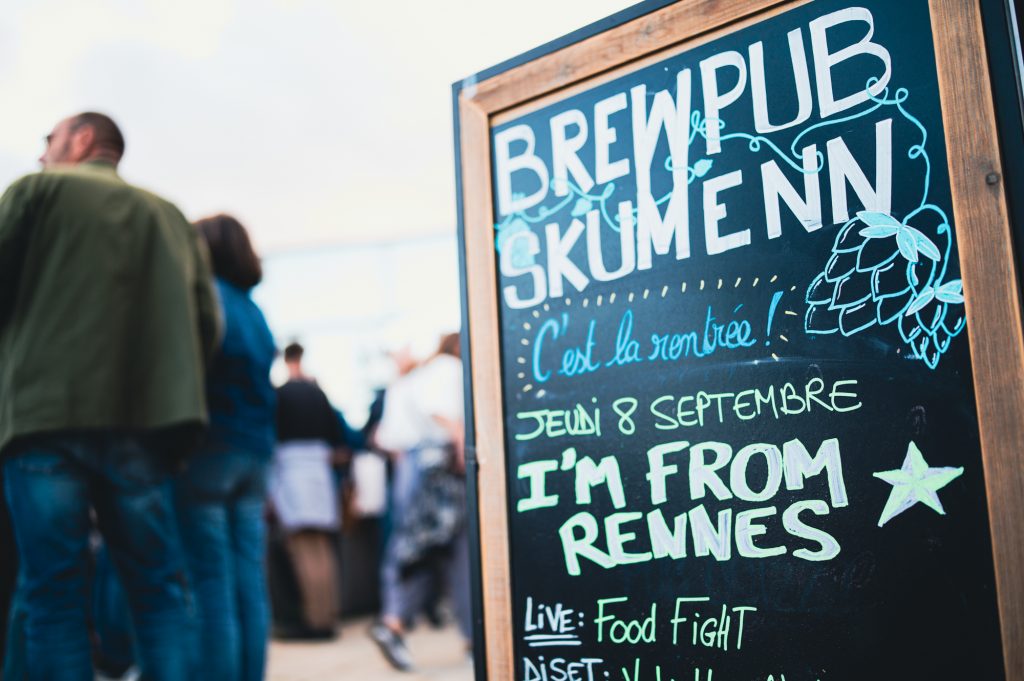 BREWPUB
SKUMENN
C'est la rentrée !
JEUDI 8 SEPTEMBRE
I'M FROM
RENNES
LIVE: Food FIGHT
DISET: